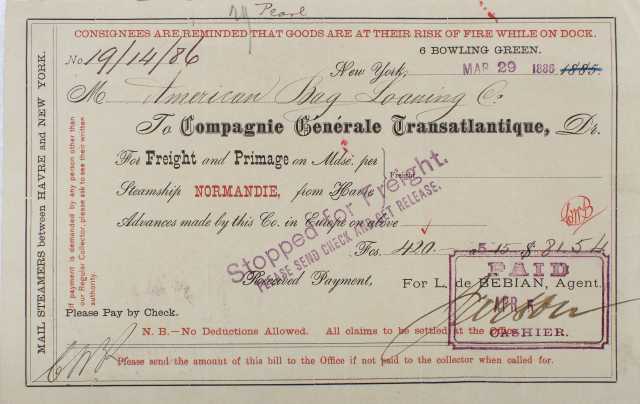 Pearl
CONSIGNEES ARE REMINDED THAT GOODS ARE AT THEIR RISK OF FIRE WHILE ON DOCK.
No. 19/14/86
6 BOWLING GREEN.
New York, MAR 29 1886 1885.
M American Bag Loaning Co
To Compagnie Générale Transatlantique, Dr.
For Freight and Primage on Mdse. per
Freight
Steamship NORMANDIE, from Havre
Advances made by this Co. in Europe on above
Fcs. 420 - a 5.15 $ 81.54
Stopped for Freight.
PLEASE SEND CHECK AND GET RELEASE.
Received Payment,
For L. de BEBIAN, Agent.
PAID
APR 5
CASHIER.
Please Pay by Check.
N. B.—No Deductions Allowed. All claims to be settled at the Office.
Please send the amount of this bill to the Office if not paid to the collector when called for.
MAIL STEAMERS between HAVRE and NEW YORK.
If payment is demanded by any person other than our Regular Collector, please ask to see their written authority.